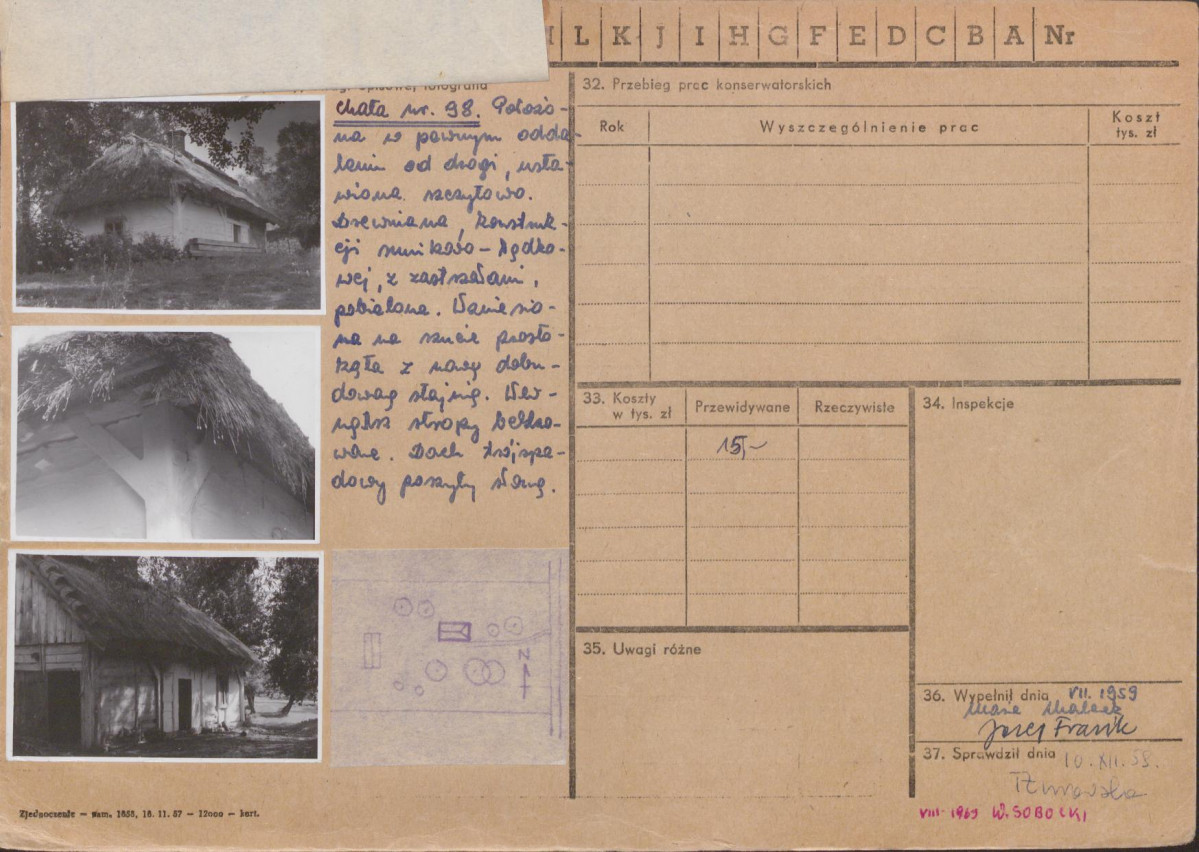 L K J I H G F E D C B A Nr
fotografia
Chata nr. 98. Położo-
na w pewnym odda-
leniu od drogi, usta-
wiona szczytowo.
Drewniana, konstruk-
cji sumikowo-łądko-
wej, z zastrzałami,
pobielona. Wzniesio-
na na rzucie prosto-
kąta z nową dobu-
dowaną stajnią. Wew-
nątrz stropy belko-
wane. Dach trójspa-
dowy poszyty słomą.
N
32. Przebieg prac konserwatorskich
Rok Wyszczególnienie prac Koszt
tys. zł
33. Koszty
w tys. zł Przewidywane Rzeczywiste
15,-
34. Inspekcje
35. Uwagi różne
36. Wypełnił dnia VII. 1959
Józef Frasik
37. Sprawdził dnia 10. XII. 59.
VIII-1969 W. SOBOCKI
Zjednoczenie — zam. 1858, 18. 11. 57 — 12000 — kart.